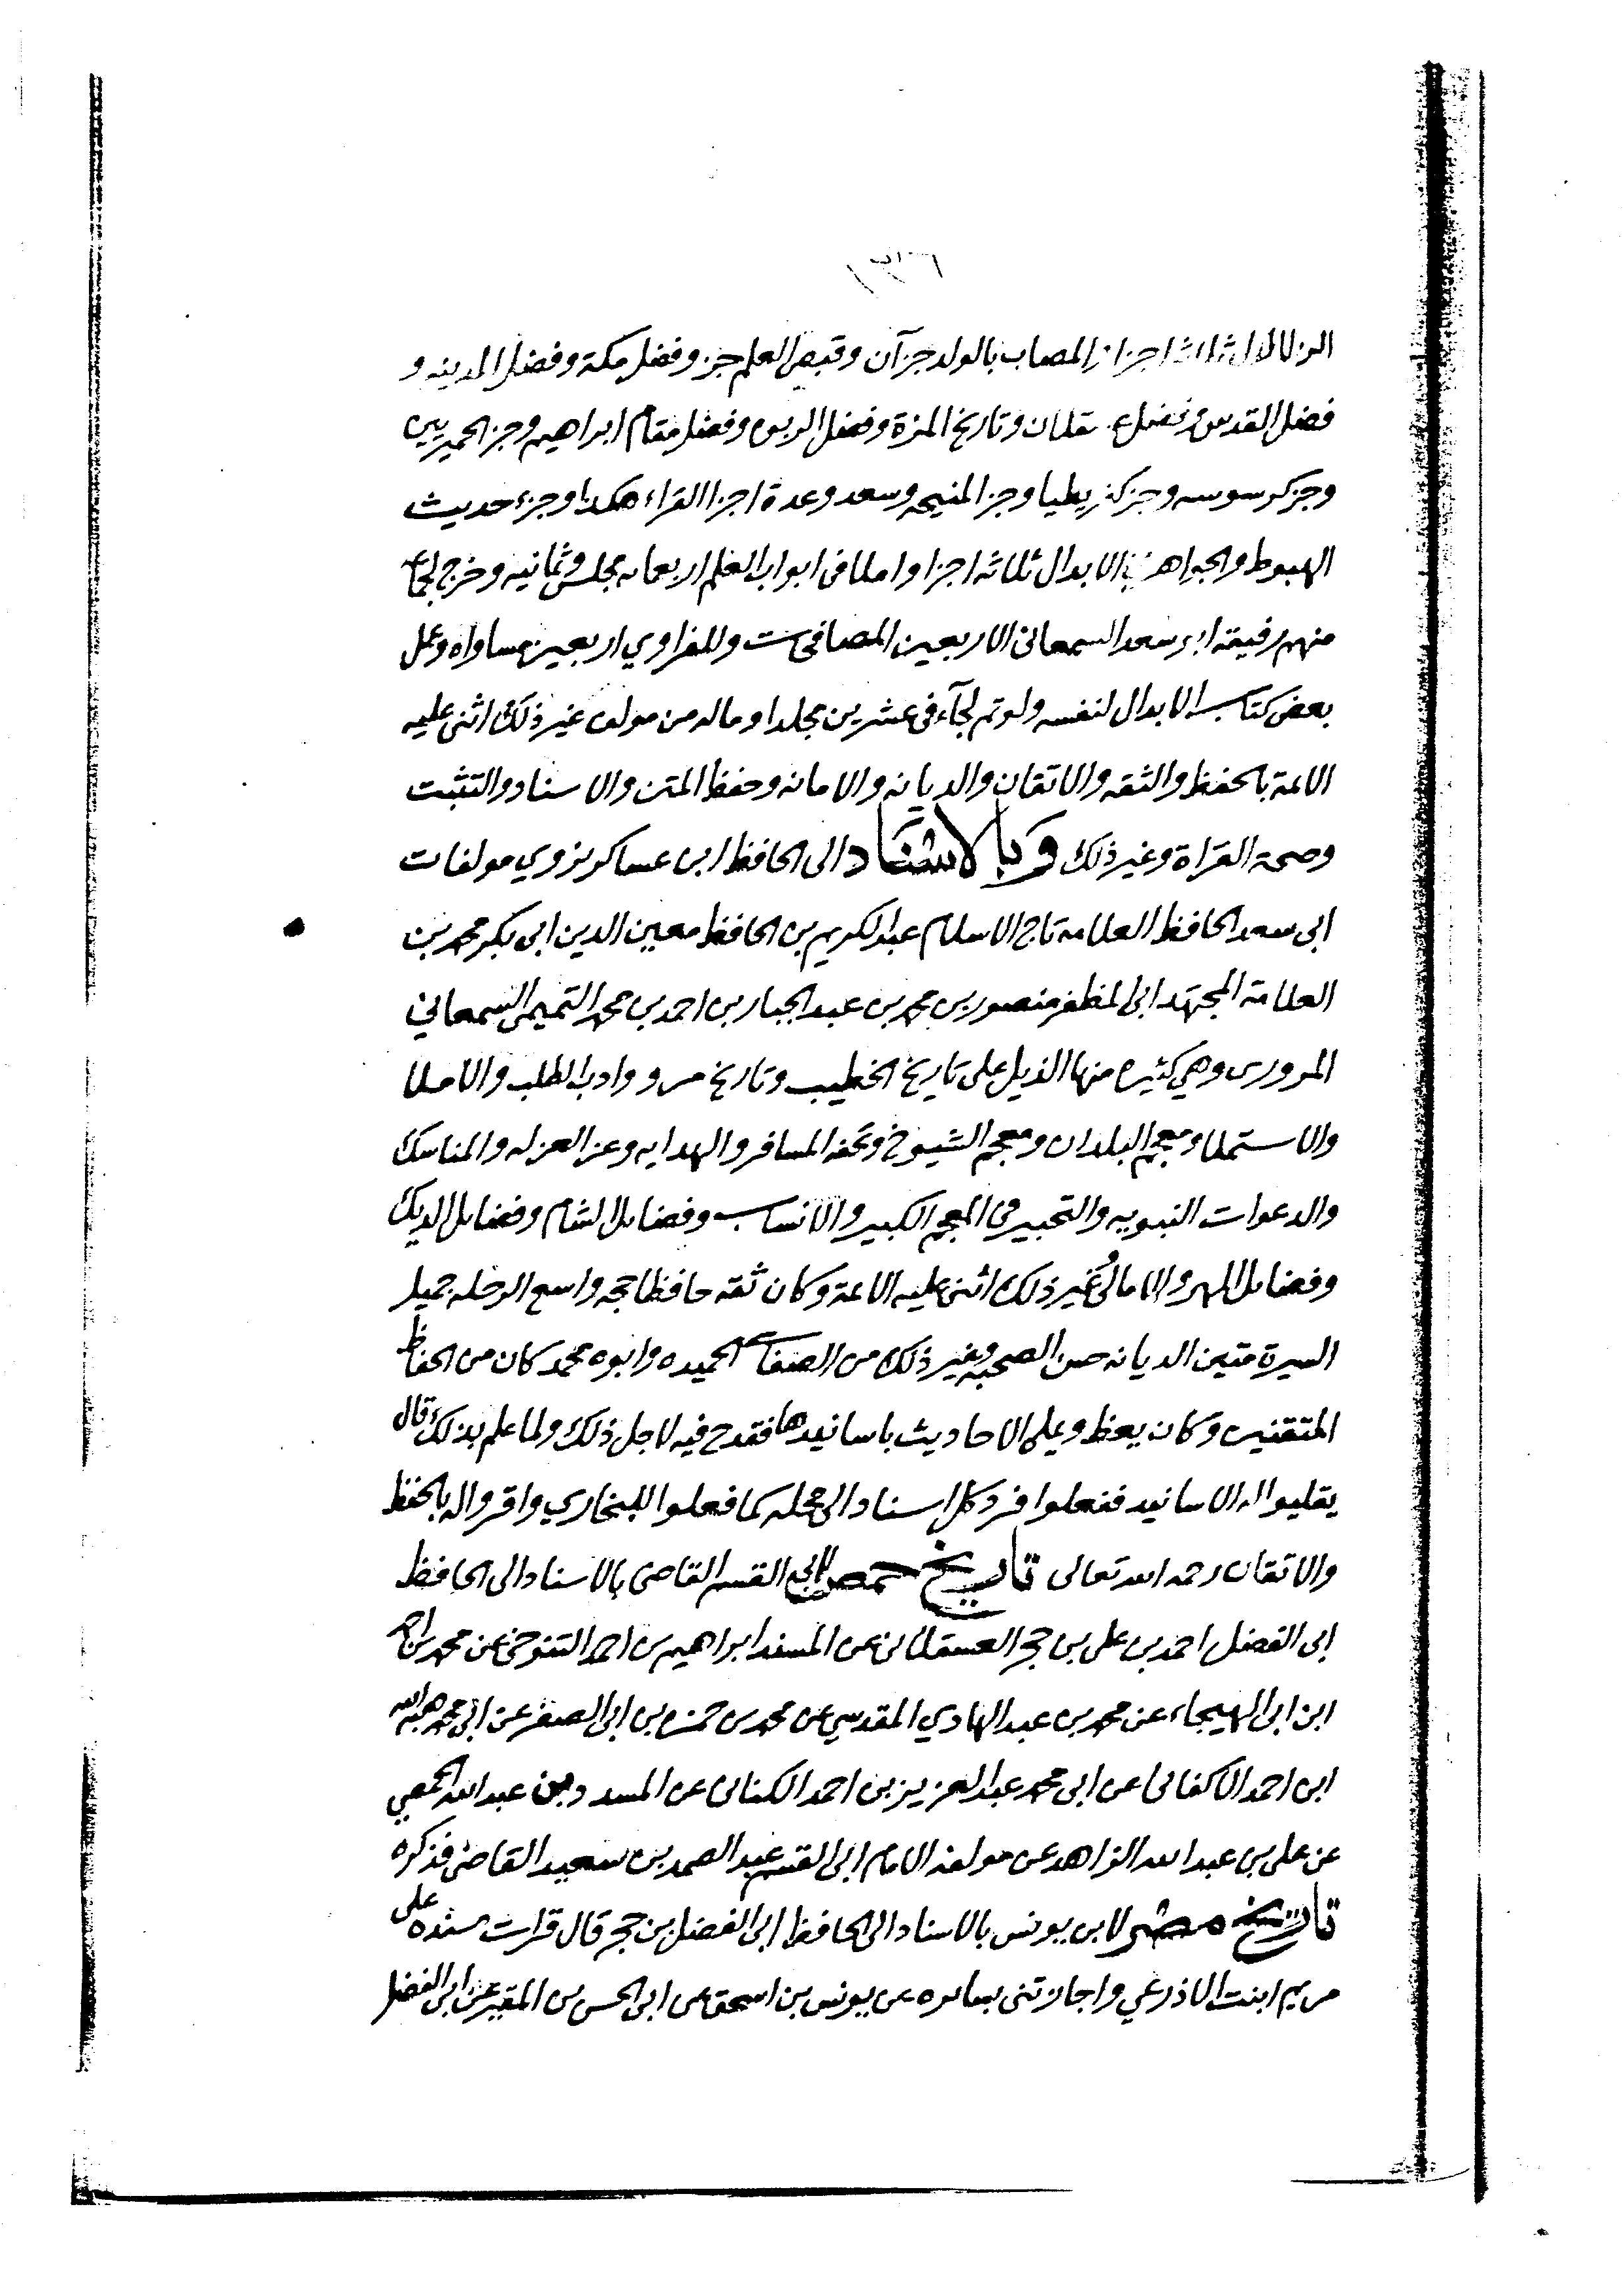 الزلازل ثلاث اجزا المصاب بالولد جزآن وقبض العلم جز وفضل مكة وفضل المدينه و
فضل القدس وفضل عسقلان وتاريخ المزة وفضل الربوه وفضل مقام ابراهيم وجز الحميريين
وجز كفرسوسه وجز كفر بطنا وجز المنيحه وسعد وعدة اجزا القراء هكذا وجزء حديث
الهبوط والجواهر في الابدال ثلاثه اجزا واملا في ابواب العلم اربعمايه مجلس وثمانيه وخرج لجماعه
منهم رفيقه ابو سعد السمعانى الاربعين المصافحات وللفراوي اربعين مساواه وعمل
بعض كتاب الابدال لنفسه ولو تم لجآء فى عشرين مجلدا وماله من مولف غير ذلك اثنى عليه
الائمة بالحفظ والثقه والاتقان والديانه والامانه وحفظ المتن والاسناد والتثبت
وصحة القراة وغير ذلك وَبالاسْنَاد الى الحافظ ابن عساكر نروي مولفات
ابى سعد الحافظ العلامه تاج الاسلام عبد الكريم بن الحافظ معين الدين ابى بكر محمد بن
العلامة المجتهد ابى المظفر منصور بن محمد بن عبد الجبار بن احمد بن محمد التميمى السمعاني
المروزى وهي كثيره منها الذيل على تاريخ الخطيب وتاريخ مرو وادب الطلب والاملا
والاستملا ومعجم البلدان ومعجم الشيوخ وتحفه المسافر والهدايه وعز العزله والمناسك
والدعوات النبويه والتحبير فى المعجم الكبير والانساب وفضايل الشام وفضايل الديك
وفضايل الهر والامالى وغير ذلك اثنى عليه الائمة وكان ثقه حافظا حجه واسع الرحله جميل
السيرة متين الديانه حسن الصحبه وغير ذلك من الصفات الحميده وابوه محمد كان من الحفاظ
المتقنين وكان يعظ ويملى الاحاديث باسانيدها فقدح فيه لاجل ذلك ولما علم بذلك قال
يقلبوا له الاسانيد ففعلوا فرد كل اسناد الى محله كما فعلوا للبخاري واقروا له بالحفظ
والاتقان رحمه الله تعالى تاريخ حمص لابي القسم القاضى بالاسناد الى الحافظ
ابى الفضل احمد بن على بن حجر العسقلانى عن المسند ابراهيم بن احمد التنوخي عن محمد بن احمد
ابن ابى الهيجاء عن محمد بن عبد الهادي المقدسي عن محمد بن حمزه بن ابى الصقر عن ابى محمد هبة الله
ابن احمد الاكفانى عن ابى محمد عبد العزيز بن احمد الكتانى عن المسدد بن عبد الله الحمصي
عن على بن عبد الله الزاهد عن مولفه الامام ابى القسم عبد الصمد بن سعيد القاضى فذكره
تاريخ مصر لابن يونس بالاسناد الى الحافظ ابى الفضل بن حجر قال قرات سنده على
مريم ابنت الاذرعي واجازتنى بسائره عن يونس بن اسحق عن ابى الحسن بن المقير عن ابى الفضل